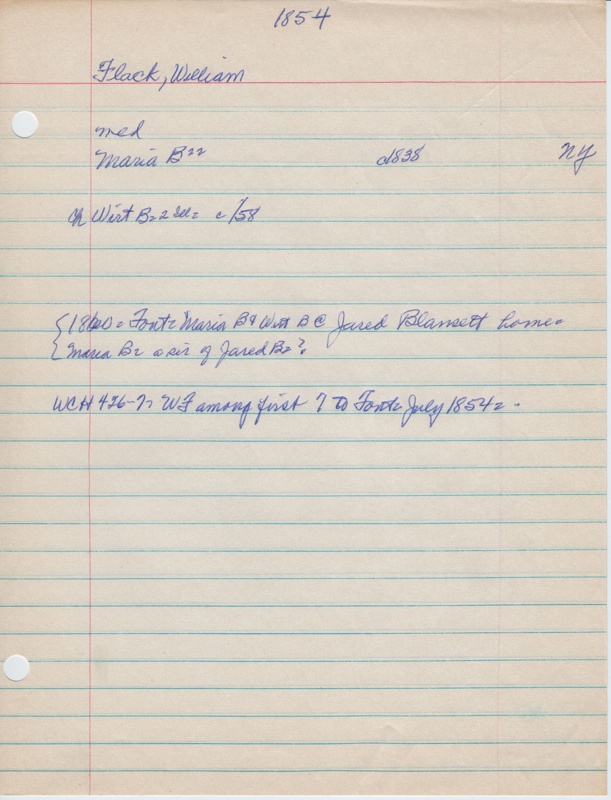 1854
Flack, William
med
Maria B
c1838 NY
Wirt B c/58
1860 = Font= Maria B & Wirt B @ Jared Blansett home=
Maria B= a sis of Jared B=?
WCH 426-7= WF among first 7 to Font= July 1854=.